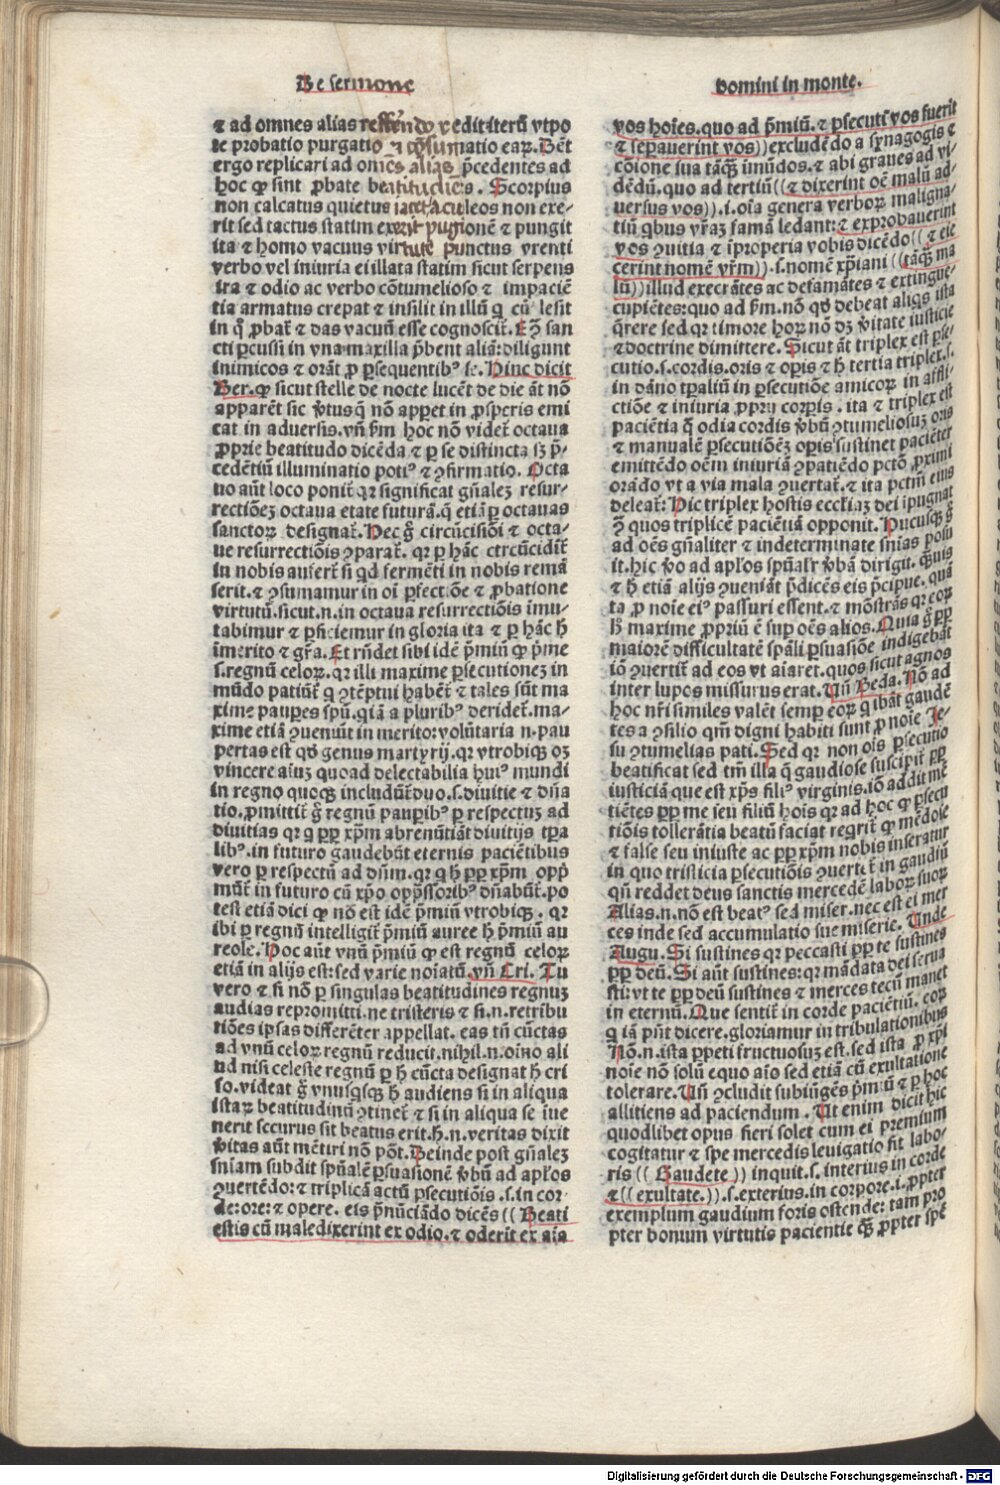 De sermone
⁊ ad omnes alias reffēndo ꝟ edit iterū vtpo
te probatio purgatio ⁊ ꝯsumatio eaꝝ. Dēt
ergo replicari ad omēs alias p̄cedentes ad
hoc ꝙ sint ꝓbate beatitudiēs. Scorpius
non calcatus quietus iacet aculeos non exe-
rit sed tactus statim exerit pugionē ⁊ pungit
ita ⁊ homo vacuus virtute punctus vrenti
verbo vel iniuria ei illata statim sicut serpens
ira ⁊ odio ac verbo cōtumelioso ⁊ impaciē
tia armatus crepat ⁊ insilit in illū q̄ cū lesit
in q̊ ꝓbat̄ ⁊ das vacuū esse cognoscit̄. Eꝯ̄ san
cti ꝑcussi in vna maxilla p̄bent aliā: diligunt
inimicos ⁊ orāt ꝓ ꝑsequentibꝰ se. Hinc dicit
Ber. ꝙ sicut stelle de nocte lucēt de die āt nō
apparēt sic v̄tusq̄ nō apꝑet in ꝓsperis emi
cat in aduersis. vn̄ ꝑm hoc nō videt̄ octaua
ꝓprie beatitudo dicēda ⁊ ꝑ se distincta sꝫ p̄-
cedētiū illuminatio potiꝰ ⁊ ꝯfirmatio. Octa
uo aūt loco ponit̄ qꝛ significat gn̄aleꝫ resur-
rectiōeꝫ octaua etate futurā. q̄ etiā ꝑ octauas
sanctoꝝ designat̄. Hec g̊ circūcisiōi ⁊ octa-
ue resurrectiōis ꝯparat̄. qꝛ ꝑ hāc circūcidit̄
in nobis aufert̄ si qd fermēti in nobis remā
serit. ⁊ ꝯsumamur in oī ꝑfectiōe ⁊ ꝓbatione
virtutū. sicut. n. in octaua resurrectiōis īmu-
tabimur ⁊ ꝑficiemur in gloria ita ⁊ ꝑ hāc h̄
īmerito ⁊ gr̄a. Et rn̄det sibi idē p̄miū ꝙ p̄me
s. regnū celoꝝ. qꝛ illi maxime ꝑsecutioneꝫ in
mūdo patiūt̄ q̄ ꝯtēptui habēt̄ ⁊ tales sūt ma
xime pauꝑes spū. q̄a a pluribꝰ deridet̄. ma-
xime etiā ꝯueniūt in merito: volūtaria n. pau
pertas est qd̄ genus martyrij. qꝛ vtrobiqꝫ oꝫ
vincere aiuꝫ quoad delectabilia huiꝰ mundi
in regno quoqꝫ includūt̄ duo. s. diuitie ⁊ dn̄a
tio. ꝓmittit̄ g̊ regnū pauꝑibꝰ ꝑ respectuꝫ ad
diuitias qꝛ q̄ ꝑꝑ xp̄m abrenūtiāt diuitijs tꝑa
libꝰ. in futuro gaudebūt eternis paciētibus
vero ꝑ respectū ad dn̄m. qꝛ q̄ h̄ ꝑꝑ xp̄m opp̄
mūt̄ in futuro cū xp̄o opp̄ssoribꝰ dn̄abūt̄. po
test etiā dici ꝙ nō est idē p̄miū vtrobiqꝫ. qꝛ
ibi ꝑ regnū intelligit̄ p̄miū auree h̄ p̄miū au
reole. Hoc aūt vnū p̄miū ꝙ est regnū celoꝝ
etiā in alijs est: sed varie noīatū. vn̄ Cri. Tu
vero ⁊ si nō ꝑ singulas beatitudines regnuꝫ
audias repromitti. ne tristeris ⁊ si. n. retribu
tiōes ipsas differēter appellat. eas tn̄ cūctas
ad vnū celoꝝ regnū reducit. nihil. n. oīno ali
ud nisi celeste regnū ꝑ h̄ cūcta designat h̄ cri
so. videat g̊ vnusqsqꝫ h̄ audiens si in aliqua
istaꝝ beatitudinū ꝯtinet̄ ⁊ si in aliqua se iue
nerit securus sit beatus erit. h. n. veritas dixit
v̄itas aūt mētiri nō pōt. Deinde post gn̄aleꝫ
sniam subdit spūalē ꝑsuasionē v̄bū ad apl̄os
ꝯuertēdo: ⁊ triplicā actū ꝑsecutiōis. s. in cor-
de: ore: ⁊ opere. eis p̄nūciādo dicēs (( Beati
estis cū maledixerint ex odio. ⁊ oderīt ex aīa
domini in monte.
vos hoīes. quo ad p̄miū. ⁊ ꝑsecuti vos fuerit
⁊ seꝑauerint vos)) excludēdo a synagogis ⁊
cōione sua tāqꝫ īmūdos. ⁊ abi graues ad vi-
dēdū. quo ad tertiū ((⁊ dixerint oē malū ad-
uersus vos)). i. oīa genera verboꝝ maligna-
tiū qbus vr̄aꝫ famā ledant: ⁊ exprobauerint
vos ꝯuitia ⁊ īproperia vobis dicēdo ((⁊ eie
cerint nomē vr̄m)). s. nomē xp̄iani ((tāqꝫ ma
lū)) illud execrātes ac defamātes ⁊ extingue-
cupiētes: quo ad ꝑm. nō qd̄ debeat aliqs ista
q̄rere sed qꝛ timore hoꝝ nō dꝫ v̄itate iusticie
⁊ doctrine dimittere. Sicut āt triplex est ꝑse-
cutio. s. cordis. oris ⁊ opis ⁊ h̄ tertia triplex. s.
in dāno tꝑaliū in ꝑsecutiōe amicoꝝ in affli-
ctiōe ⁊ iniuria ꝓprij corꝑis. ita ⁊ triplex est
paciētia q̄ odia cordis v̄bū ꝯtumeliosuꝫ oris
⁊ manualē ꝑsecutiōēꝫ opis sustinet paciēter
emittēdo oēm iniuriā ꝯpatiēdo pctō ꝓximi
orādo vt a via mala ꝯuertat̄. ⁊ ita pctm̄ eius
deleat̄: Hic triplex hostis ecclīaꝫ dei īpugnat
ꝯ̄ quos triplicē paciētiā opponit. Hucusqꝫ g̊
ad oēs gn̄aliter ⁊ indeterminate sn̄ias posu
it. hic v̄o ad apl̄os spūalr̄ v̄ba dirigit. quis
⁊ h̄ etiā alijs ꝯueniāt p̄dicēs eis p̄cipue. quā
ta ꝓ noīe eiꝰ passuri essent. ⁊ mōstrās qꝛ eoꝝ
h̄ maxime ꝓpriū ē suꝑ oēs alios. Quia g̊ ꝑꝑ
maiorē difficultatē spāli ꝑsuasiōe indigebāt
iō ꝯuertit̄ ad eos vt aīaret. quos sicut agnos
inter lupos missurus erat. Vn̄ Beda. Nō ad
hoc nr̄i similes valēt semꝑ eoꝝ q̄ ibāt gaudē
tes a ꝯsilio qm̄ digni habiti sunt ꝓ noīe Je-
su ꝯtumelias pati. Sed qꝛ non oīs ꝑsecutio
beatificat sed tm̄ illa q̄ gaudiose suscipit̄ ꝑꝑ
iusticiā que est xp̄s filiꝰ virginis. iō addit mē
tiētes ꝑꝑ me ieu filiū hoīs qꝛ ad hoc ꝙ ꝑsecu
tiōis tollerātia beatū faciat regrit̄ ꝙ mēdose
⁊ false seu iniuste ac ꝑꝑ xp̄m nobis inseratur
in quo tristicia ꝑsecutiōis ꝯuertet̄ in gaudiū
qn̄ reddet deus sanctis mercedē laboꝝ suoꝝ
Alias. n. nō est beatꝰ sed miser. nec est ei mer
ces inde sed accumulatio sue miserie. Unde
Augu. Si sustines qꝛ peccasti ꝑꝑ te sustines
ꝑꝑ deū. Si aūt sustines: qꝛ mādata dei serua
sti: vt te ꝑꝑ deū sustines ⁊ merces tecū manet
in eternū. Que sentit̄ in corde paciētiū. coꝝ
q̄ iā pn̄t dicere. gloriamur in tribulationibus
Nō. n. ista ꝑpeti fructuosuꝫ est. sed ista ꝓ xp̄i
noīe nō solū equo aīo sed etiā cū exultatione
tolerare. Vn̄ ꝯcludit subiūgēs p̄miū ⁊ ꝑ hoc
allitiens ad paciendum. Ut enim dicit hic
quodlibet opus fieri solet cum ei premium
cogitatur ⁊ spe mercedis leuigatio fit labo-
ris (( Gaudete )) inquit. s. interius in corde
⁊ (( exultate. )). s. exterius. in corpore. i. ꝓpter
exemplum gaudium foris ostende: tam pro
pter bonum virtutis pacientie qꝫ ꝓpter spē
Digitalisierung gefördert durch die Deutsche Forschungsgemeinschaft - DFG